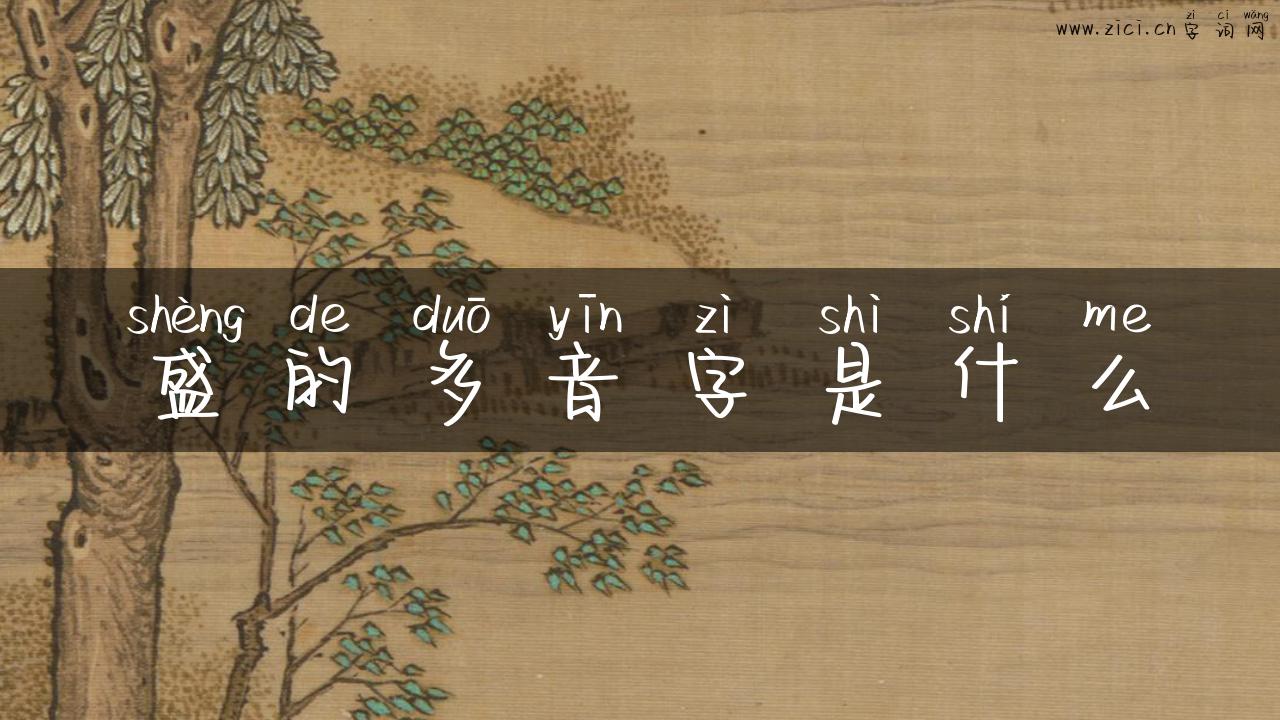 zì cí wǎng
www.zici.cn 字词网
shèng de duō yīn zì shì shí me
盛的多音字是什么